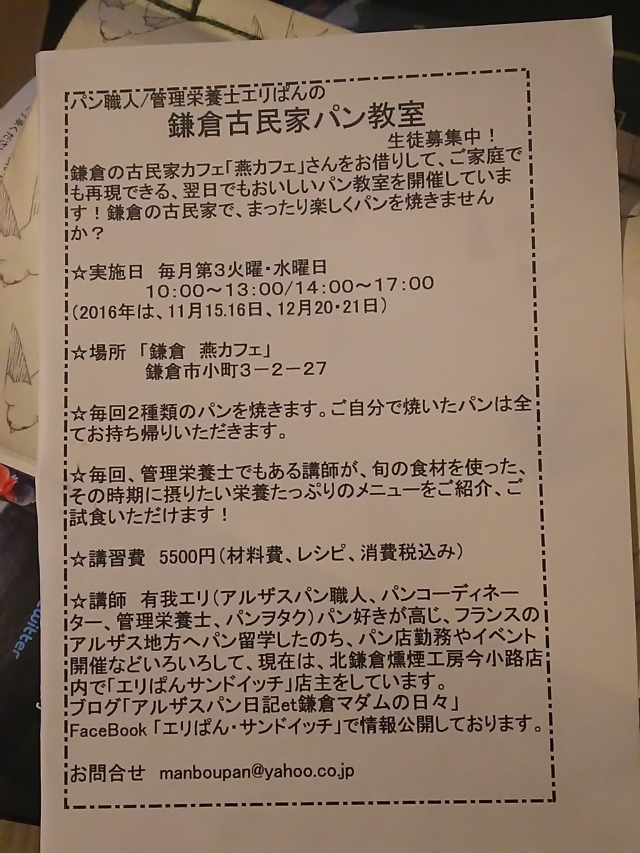 パン職人/管理栄養士エリぱんの
鎌倉古民家パン教室
生徒募集中！
鎌倉の古民家カフェ「燕カフェ」さんをお借りして、ご家庭で
も再現できる、翌日でもおいしいパン教室を開催していま
す！鎌倉の古民家で、まったり楽しくパンを焼きません
か？
☆実施日　毎月第３火曜・水曜日
１０：００～１３：００/１４：００～１７：００
（2016年は、11月15.16日、12月20・21日）
☆場所　「鎌倉　燕カフェ」
鎌倉市小町３－２－２７
☆毎回２種類のパンを焼きます。ご自分で焼いたパンは全
てお持ち帰りいただきます。
☆毎回、管理栄養士でもある講師が、旬の食材を使った、
その時期に摂りたい栄養たっぷりのメニューをご紹介、ご
試食いただけます！
☆講習費　5500円（材料費、レシピ、消費税込み）
☆講師　有我エリ（アルザスパン職人、パンコーディネー
ター、管理栄養士、パンヲタク）パン好きが高じ、フランスの
アルザス地方へパン留学したのち、パン店勤務やイベント
開催などいろいろして、現在は、北鎌倉燻煙工房今小路店
内で「エリぱんサンドイッチ」店主をしています。
ブログ「アルザスパン日記et鎌倉マダムの日々」
FaceBook「エリぱん・サンドイッチ」で情報公開しております。
お問合せ　manboupan@yahoo.co.jp
twitter